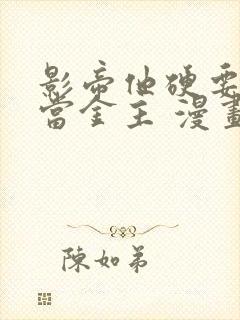 影帝他硬要
當金主 漫畫
陳如弟